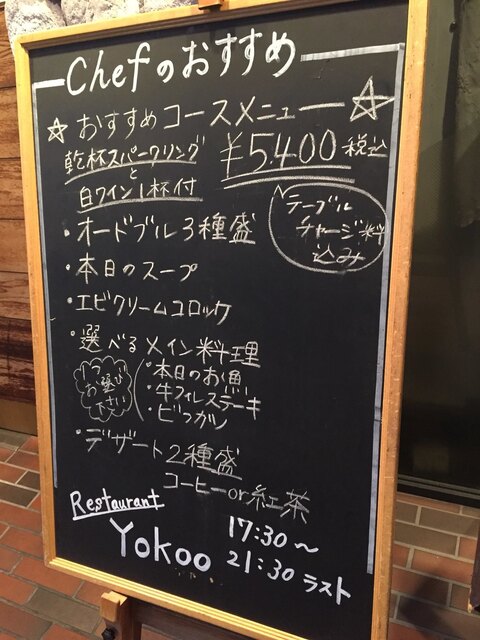 Chefのおすすめ
☆おすすめコースメニュー☆
乾杯スパークリング
と
白ワイン1杯付
¥5.400 税込
テーブル
チャージ料
込み
・オードブル3種盛
・本日のスープ
・エビクリームコロッケ
・選べるメイン料理
1つ
お選び
下さい
・本日のお魚
・牛フィレステーキ
・ビフカツ
・デザート2種盛
コーヒーor紅茶
Restaurant
Yokoo
17:30〜
21:30 ラスト